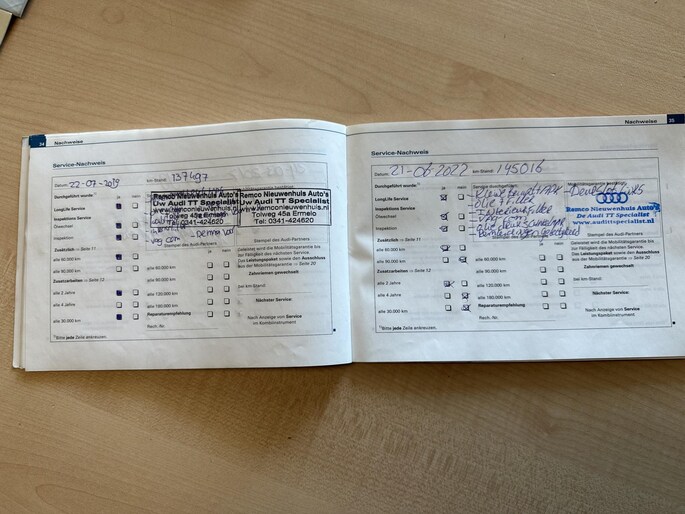 34 Nachweise
Service-Nachweis
Datum: 22-07-2019 km-Stand: 137497
Durchgeführt wurde:
ja nein
LongLife Service
Inspektions Service
Ölwechsel
Inspektion
Remco Nieuwenhuis Auto's
Uw Audi TT Specialist
www.remconieuwenhuis.nl
Tolweg 45a Ermelo
Tel. 0341-424620
Remco Nieuwenhuis Auto's
Uw Audi TT Specialist
www.remconieuwenhuis.nl
Tolweg 45a Ermelo
Tel. 0341-424620
Stempel des Audi-Partners
Zusätzlich ⇒ Seite 11
ja nein
alle 60.000 km
alle 90.000 km
Zusatzarbeiten ⇒ Seite 12
alle 2 Jahre
alle 4 Jahre
alle 30.000 km
alle 60.000 km
alle 90.000 km
alle 120.000 km
alle 180.000 km
Reparaturempfehlung
Rech.-Nr.
Stempel des Audi-Partners
Geleistet wird die Mobilitätsgarantie bis
zur Fälligkeit des nächsten Service.
Das Leistungspaket sowie den Ausschluss
aus der Mobilitätsgarantie ⇒ Seite 20
Zahnriemen gewechselt:
bei km-Stand:
Nächster Service:
Nach Anzeige von Service
im Kombiinstrument
Bitte jede Zeile ankreuzen.
Nachweise 35
Service-Nachweis
Datum: 21-06-2022 km-Stand: 145016
Durchgeführt wurde:
ja nein
LongLife Service
Inspektions Service
Ölwechsel
Inspektion
oliefilter
Interieurfilter
Remco Nieuwenhuis Auto's
De Audi TT Specialist
www.audittspecialist.nl
Zusätzlich ⇒ Seite 11
ja nein
alle 60.000 km
alle 90.000 km
Zusatzarbeiten ⇒ Seite 12
alle 2 Jahre
alle 4 Jahre
alle 30.000 km
alle 90.000 km
alle 120.000 km
alle 180.000 km
Reparaturempfehlung
Rech.-Nr.
Geleistet wird die Mobilitätsgarantie bis
zur Fälligkeit des nächsten Service.
Das Leistungspaket sowie den Ausschluss
aus der Mobilitätsgarantie ⇒ Seite 20
Zahnriemen gewechselt:
bei km-Stand:
Nächster Service:
Nach Anzeige von Service
im Kombiinstrument
Bitte jede Zeile ankreuzen.